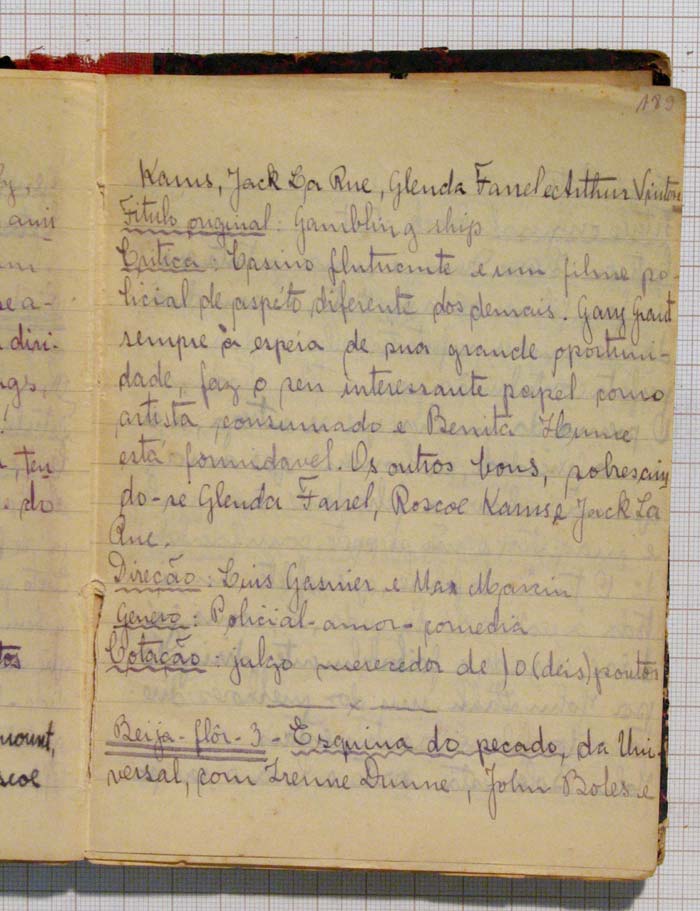 189
Karns, Jack La Rue, Glenda Farrel e Arthur Vinton
Titulo original: Gambling ship
Critica: Casino flutuante e um filme po-
licial de aspéto diferente dos demais. Gary Grant
sempre à espeia de sua grande oportuni-
dade, faz o seu interessante papel como
artista consumado e Benita Hume
está formidavel. Os outros bons, sobresain
do-se Glenda Farrel, Roscoe Karns e Jack La
Rue.
Direcão: Luis Gasnier e Max Marcin
Genero: Policial-amor-comedia
Cotação: julgo merecedor de 10 (deis) pontos
Beija-flôr-3-Esquina do pecado, da Uni-
versal, com Irenne Dunne, John Boles e
by,
ami
se a-
diri-
ngs,
, ten
do
tos
mount,
scoe